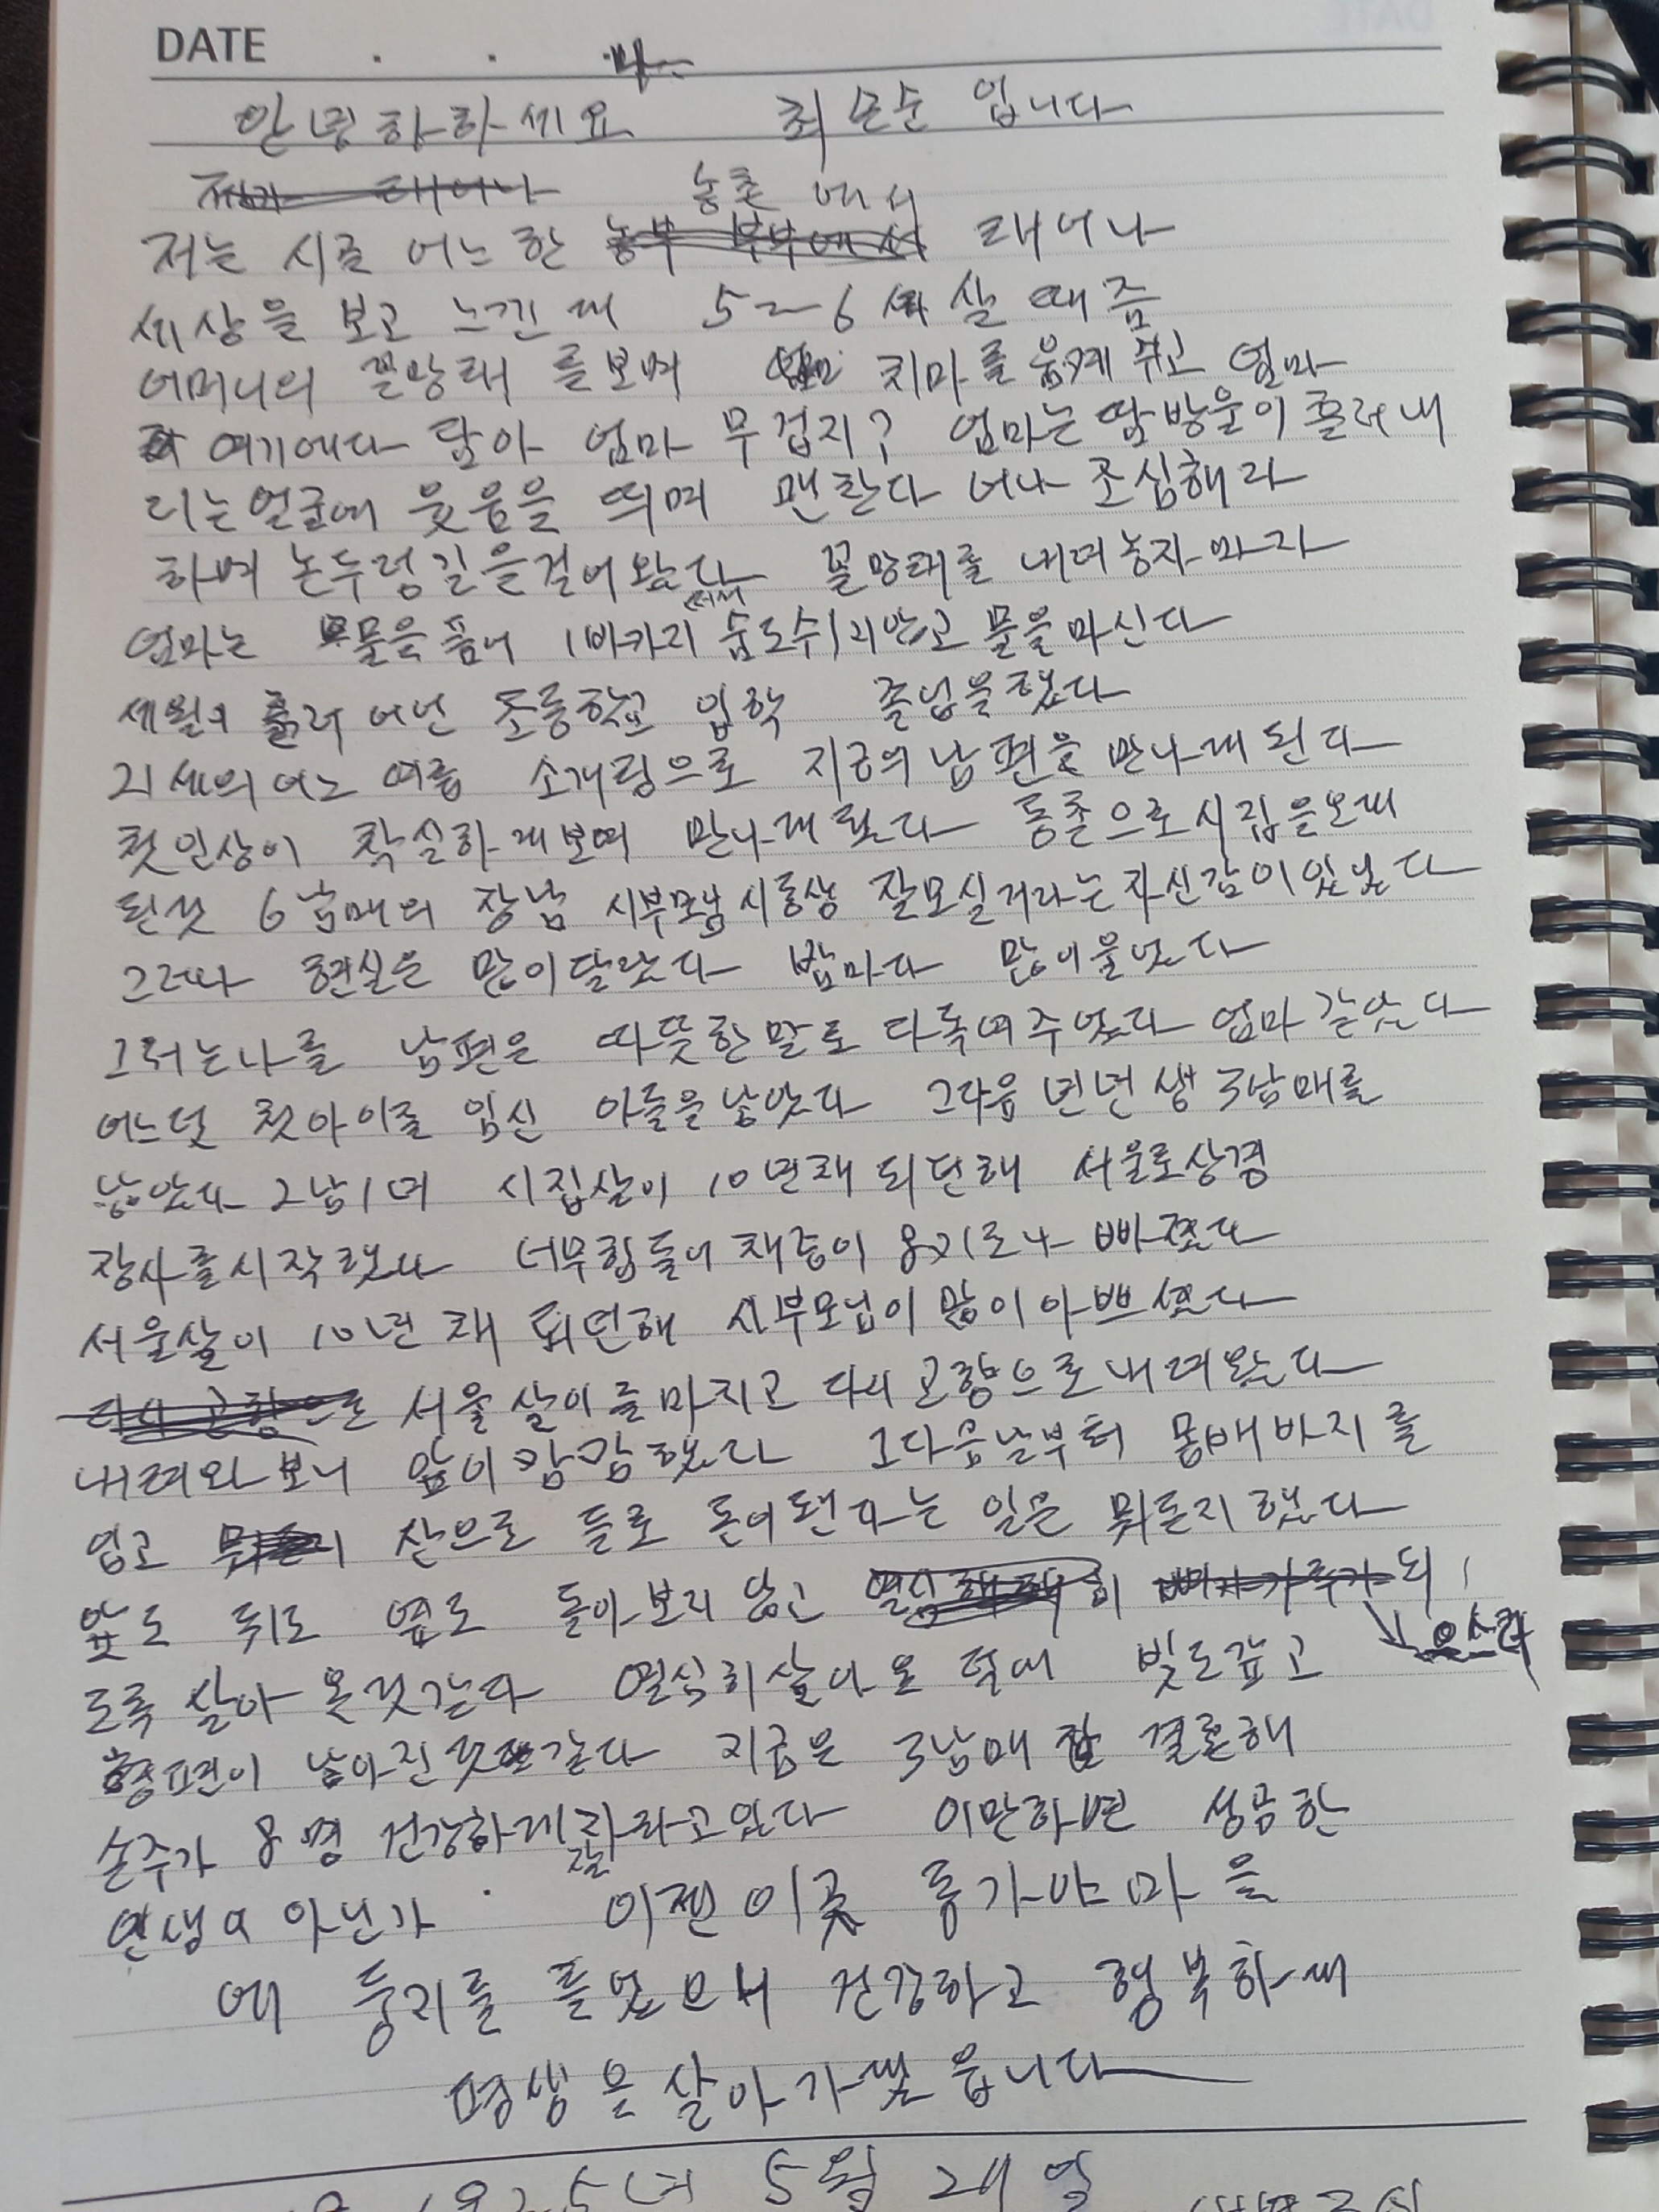 DATE
안녕하하세요 최순순 입니다
농촌에서
저는 시골 어느한 태어나
세상을 보고 느낀데 5~6 살 때즘
어머니의 꼴망태 를보며 치마를 움켜쥐고 엄마
여기에다 담아 엄마 무겁지? 엄마는 땀방울이 흘러내
리는얼굴에 웃음을 띄며 괜찬다 너나 조심해라
하며 논두렁길을걸어왔다 꼴망태를 내려놓자마자
엄마는 물을품어 1바가지 숨도수ㅣ지안고 물을마신다
세월이 흘러 어넌 초등학교 입학 졸업을했다
21세의어느 여름 소개링으로 지금의남편을 만나게된다
첫인상이 착실하게보여 만나게됬다 동촌으로시집을오게
된것 6남매의 장남 시부모님시동생 잘모실거라는자신감이있었다
그러나 현실은 많이달랐다 밤마다 많이울었다
그러는나를 남편은 따뜻한말로 다독여주었다 엄마같았다
어느덧 첫아이를 임신 아들을낳앗다 그다음년년생 3남매를
낳았다 2남1여 시집살이 10년재 되던해 서울로상경
장사를시작했다 너무힘들어 채중이 8키로나 빠졌다
서울살이 10년 재 되던해 시부모님이 많이아쁘셨다
서울살이를마치고 다시고향으로내려왔다
내려와보니 앞이캄캄했다 그다음날부터 몸배바지를
입고 산으로 들로 돈이된다는 일은 뭐든지했다
앞도 뒤도 옆도 돌아보지 않고 되
으스러
도록 살아 온것같다 열심히살아온 덕에 빛도갚고
형편이 낳아진것같다 지금은 3남매 결혼해
손주가 8명 건강하게자라고있다 이만하면 성공한
잘
인생이 아닌가 . 이젠이곳 풍가야마을
에 둥지를 틀었으니 건강하고 행복하게
평생을살아가겠읍니다
5년 5월 24일